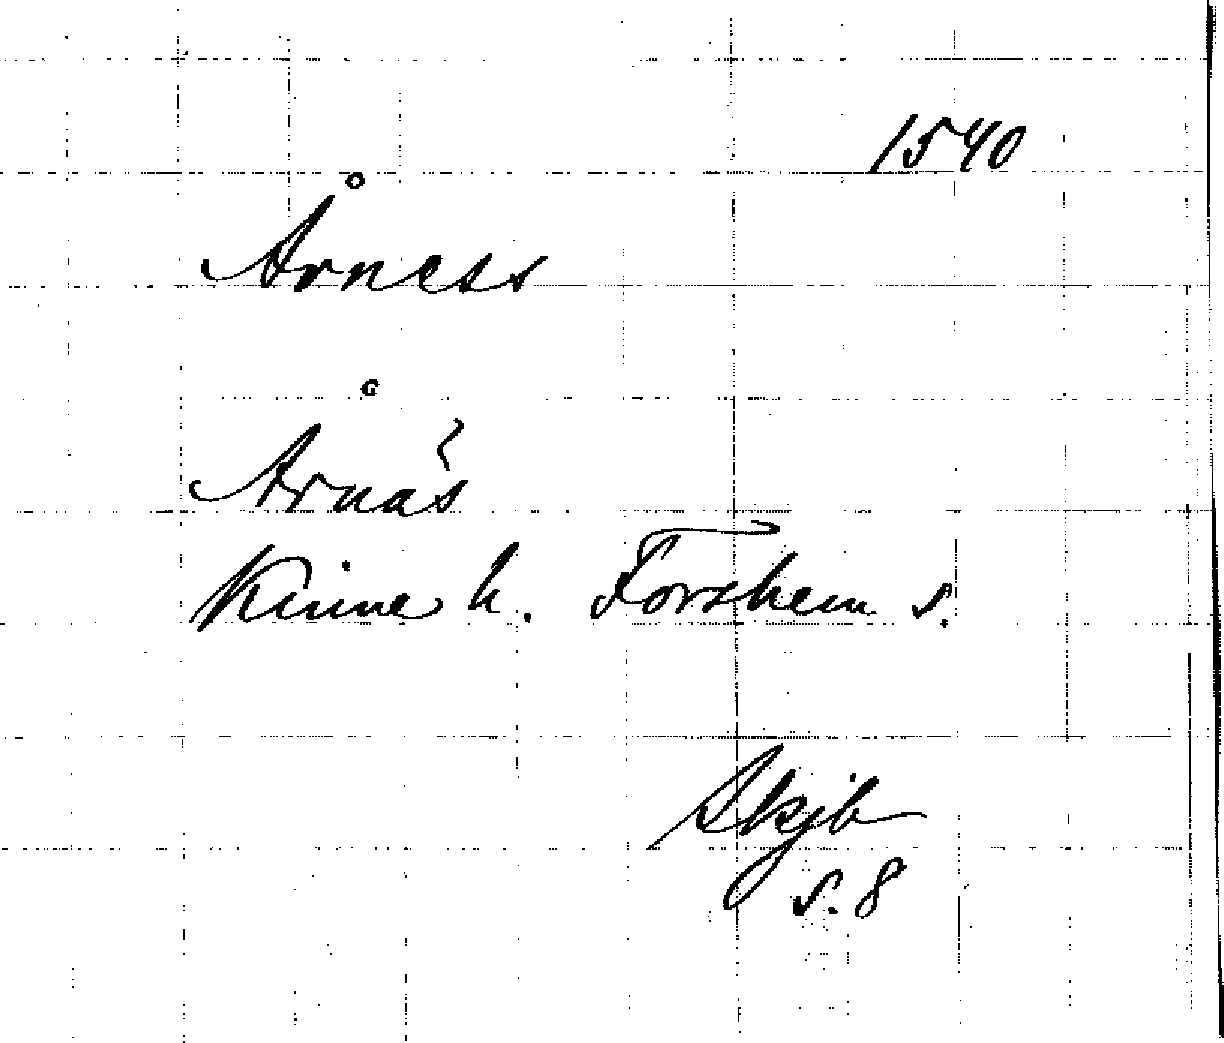 1540
Årness
Årnäs
Kinne h. Forshem s.
Skjb
s. 8